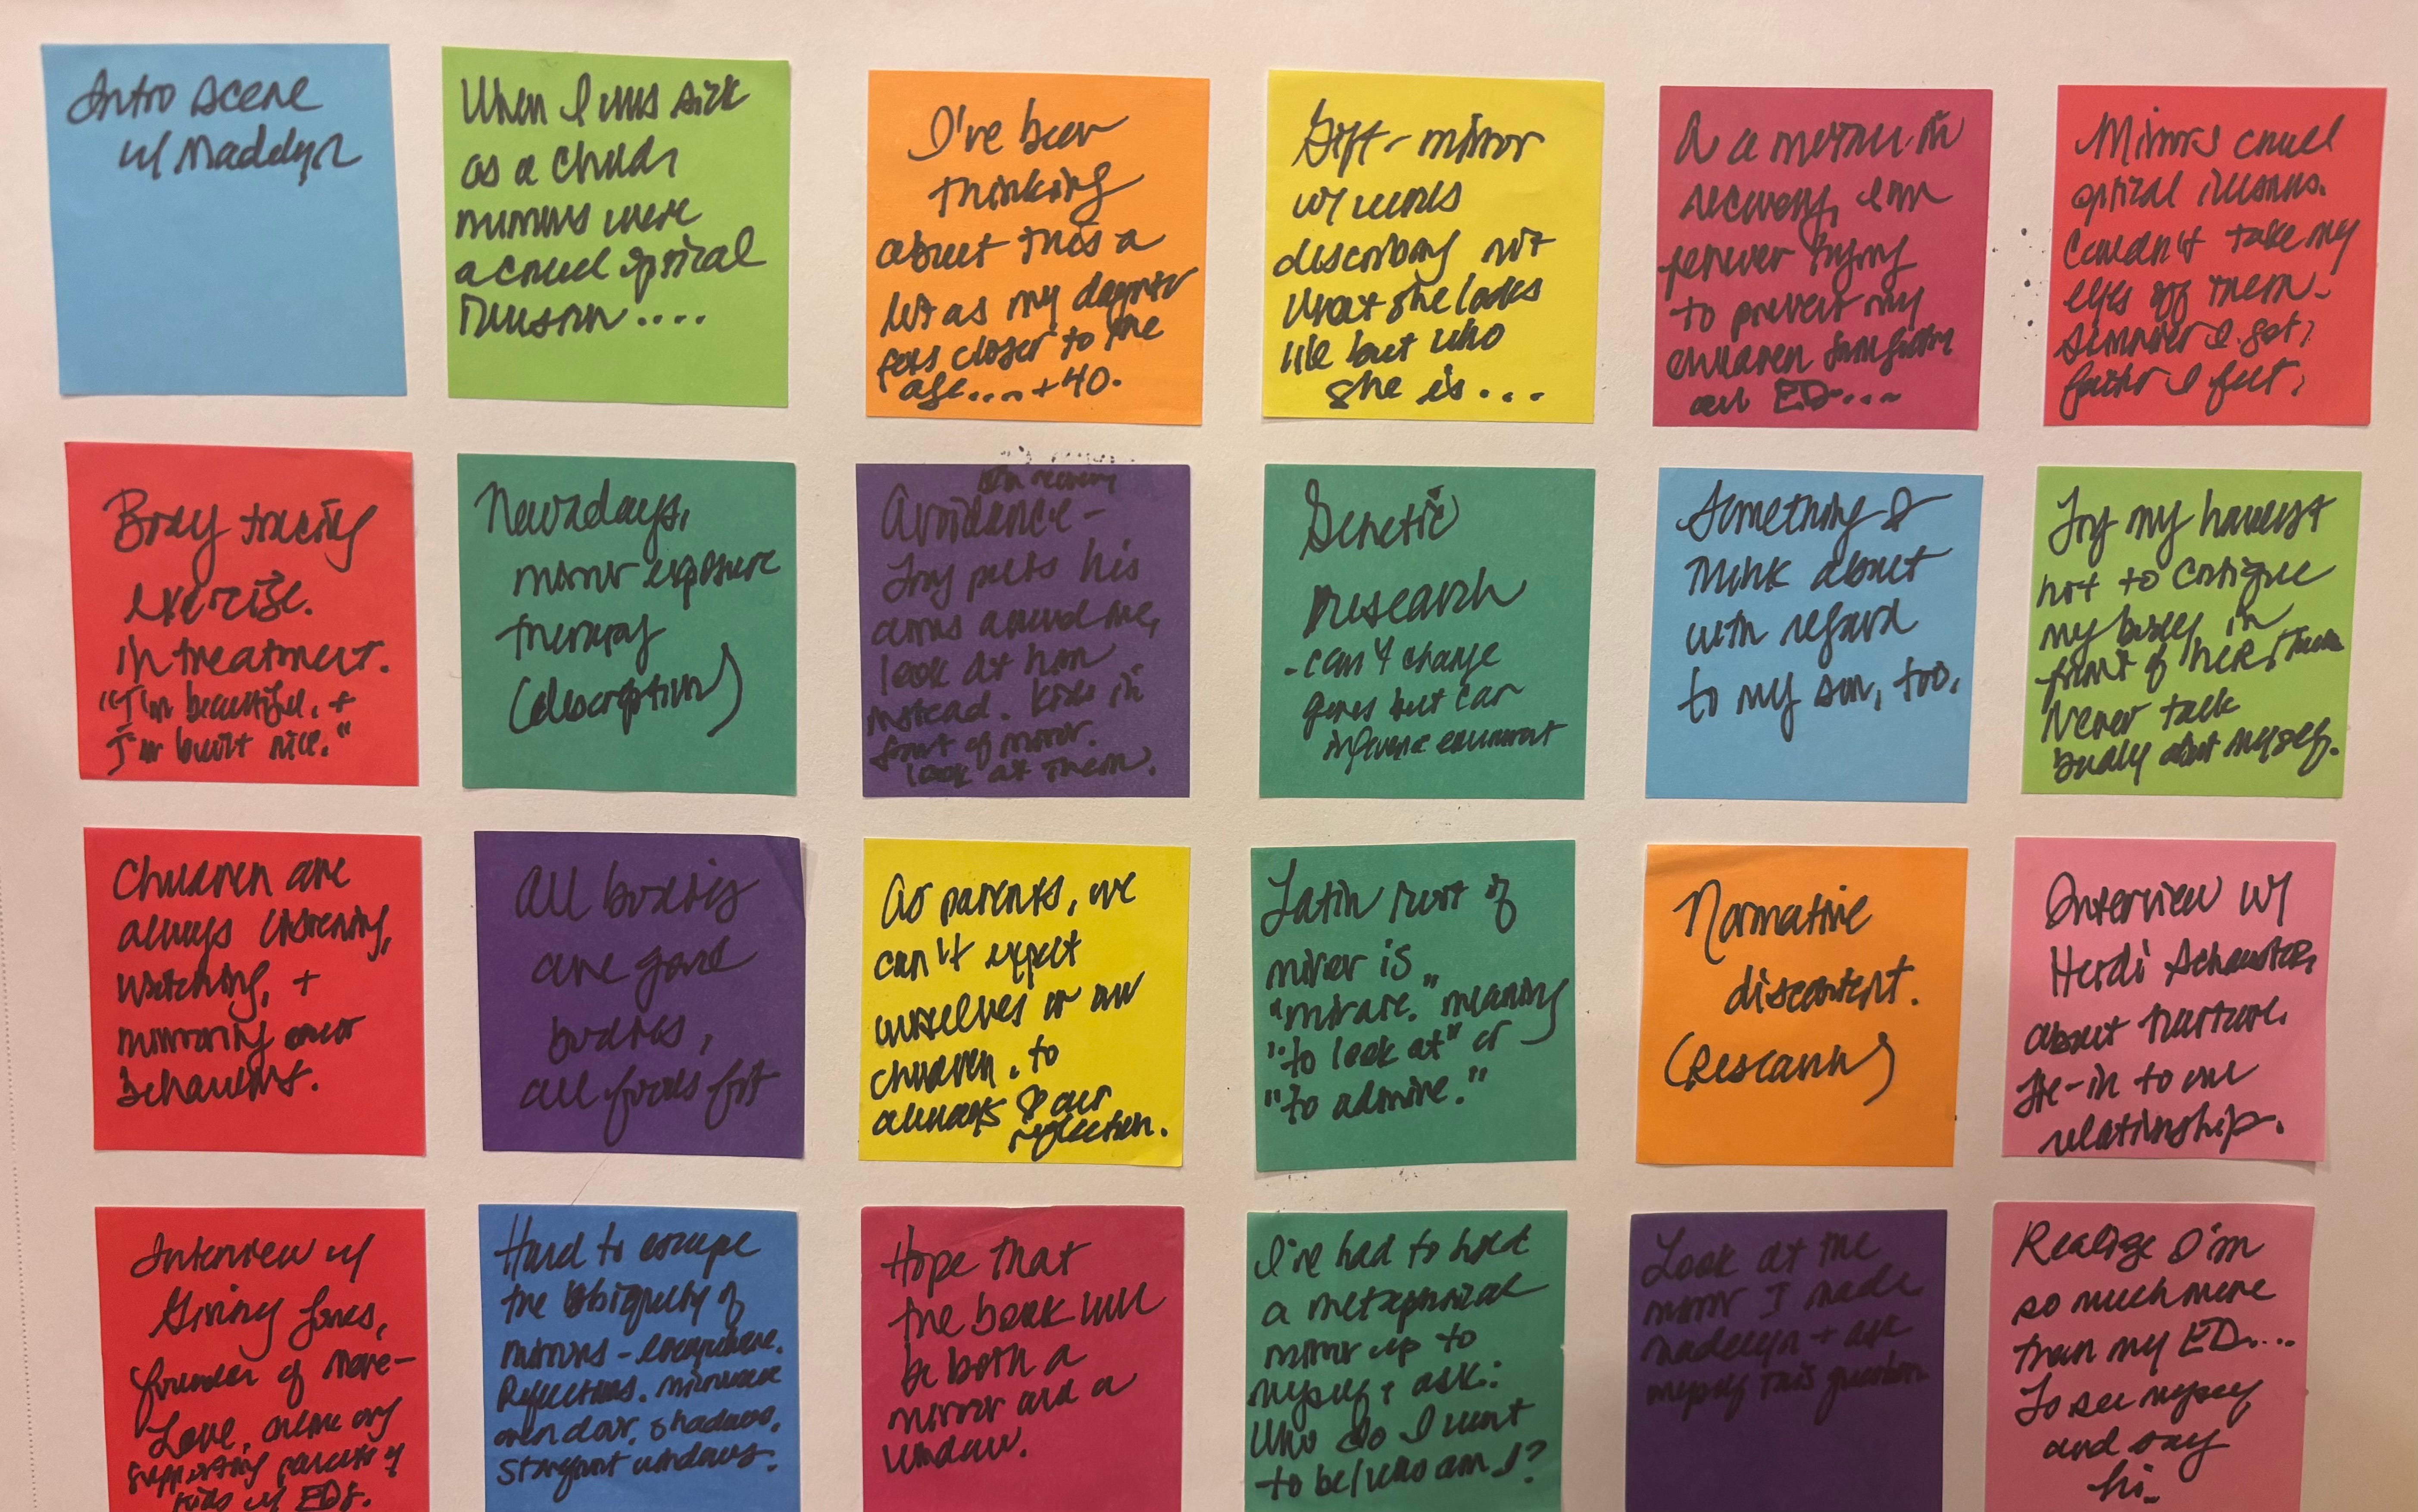 Intro scene
w/ Maddelyn
When I was sick
as a child,
mirrors were
a cruel optical
illusion....
I've been
thinking
about this a
lot as my daughter
gets closer to the
age.... + 40.
Gift - mirror
w/ words
describing not
what she looks
like but who
she is...
As a mother in
recovery, I'm
forever trying
to prevent my
children from getting
an ED....
Mirrors cruel
optical illusions.
Couldn't take my
eyes off them.
Skinnier I got,
fatter I felt.
Body tracing
exercise.
in treatment.
"I'm beautiful, +
I'm built nice."
Nowadays,
mirror exposure
therapy
(description)
In recovery
Avoidance -
Troy puts his
arms around me,
look at him
instead. Kids in
front of mirror.
look at them.
Genetic
research
- can't change
genes but can
influence environment
Something I
think about
with regard
to my son, too.
Try my hardest
not to critique
my body in
front of her/them
Never talk
badly about myself.
Children are
always listening,
watching, +
mirroring our
behaviors.
All bodies
are good
bodies,
all foods fit
As parents, we
can't expect
ourselves or our
children, to
always ♡ our
reflection.
Latin root of
mirror is
"mirare." meaning
"to look at" or
"to admire."
Normative
discontent.
(Research)
Interview w/
Heidi Schauster,
about nurture.
Tie-in to our
relationship.
Interview w/
founder of More-
Love, online org
supporting parents of
kids w/ EDs.
Hard to escape
the ubiquity of
mirrors - everywhere.
Reflections. microwave
oven door. shadows.
storefront windows.
Hope that
the book will
be both a
mirror and a
window.
I've had to hold
a metaphorical
mirror up to
myself + ask:
Who do I want
to be/who am I?
Look at the
mirror I made
Maddelyn + ask
myself this question.
Realize I'm
so much more
than my ED....
To see myself
and say
hi.